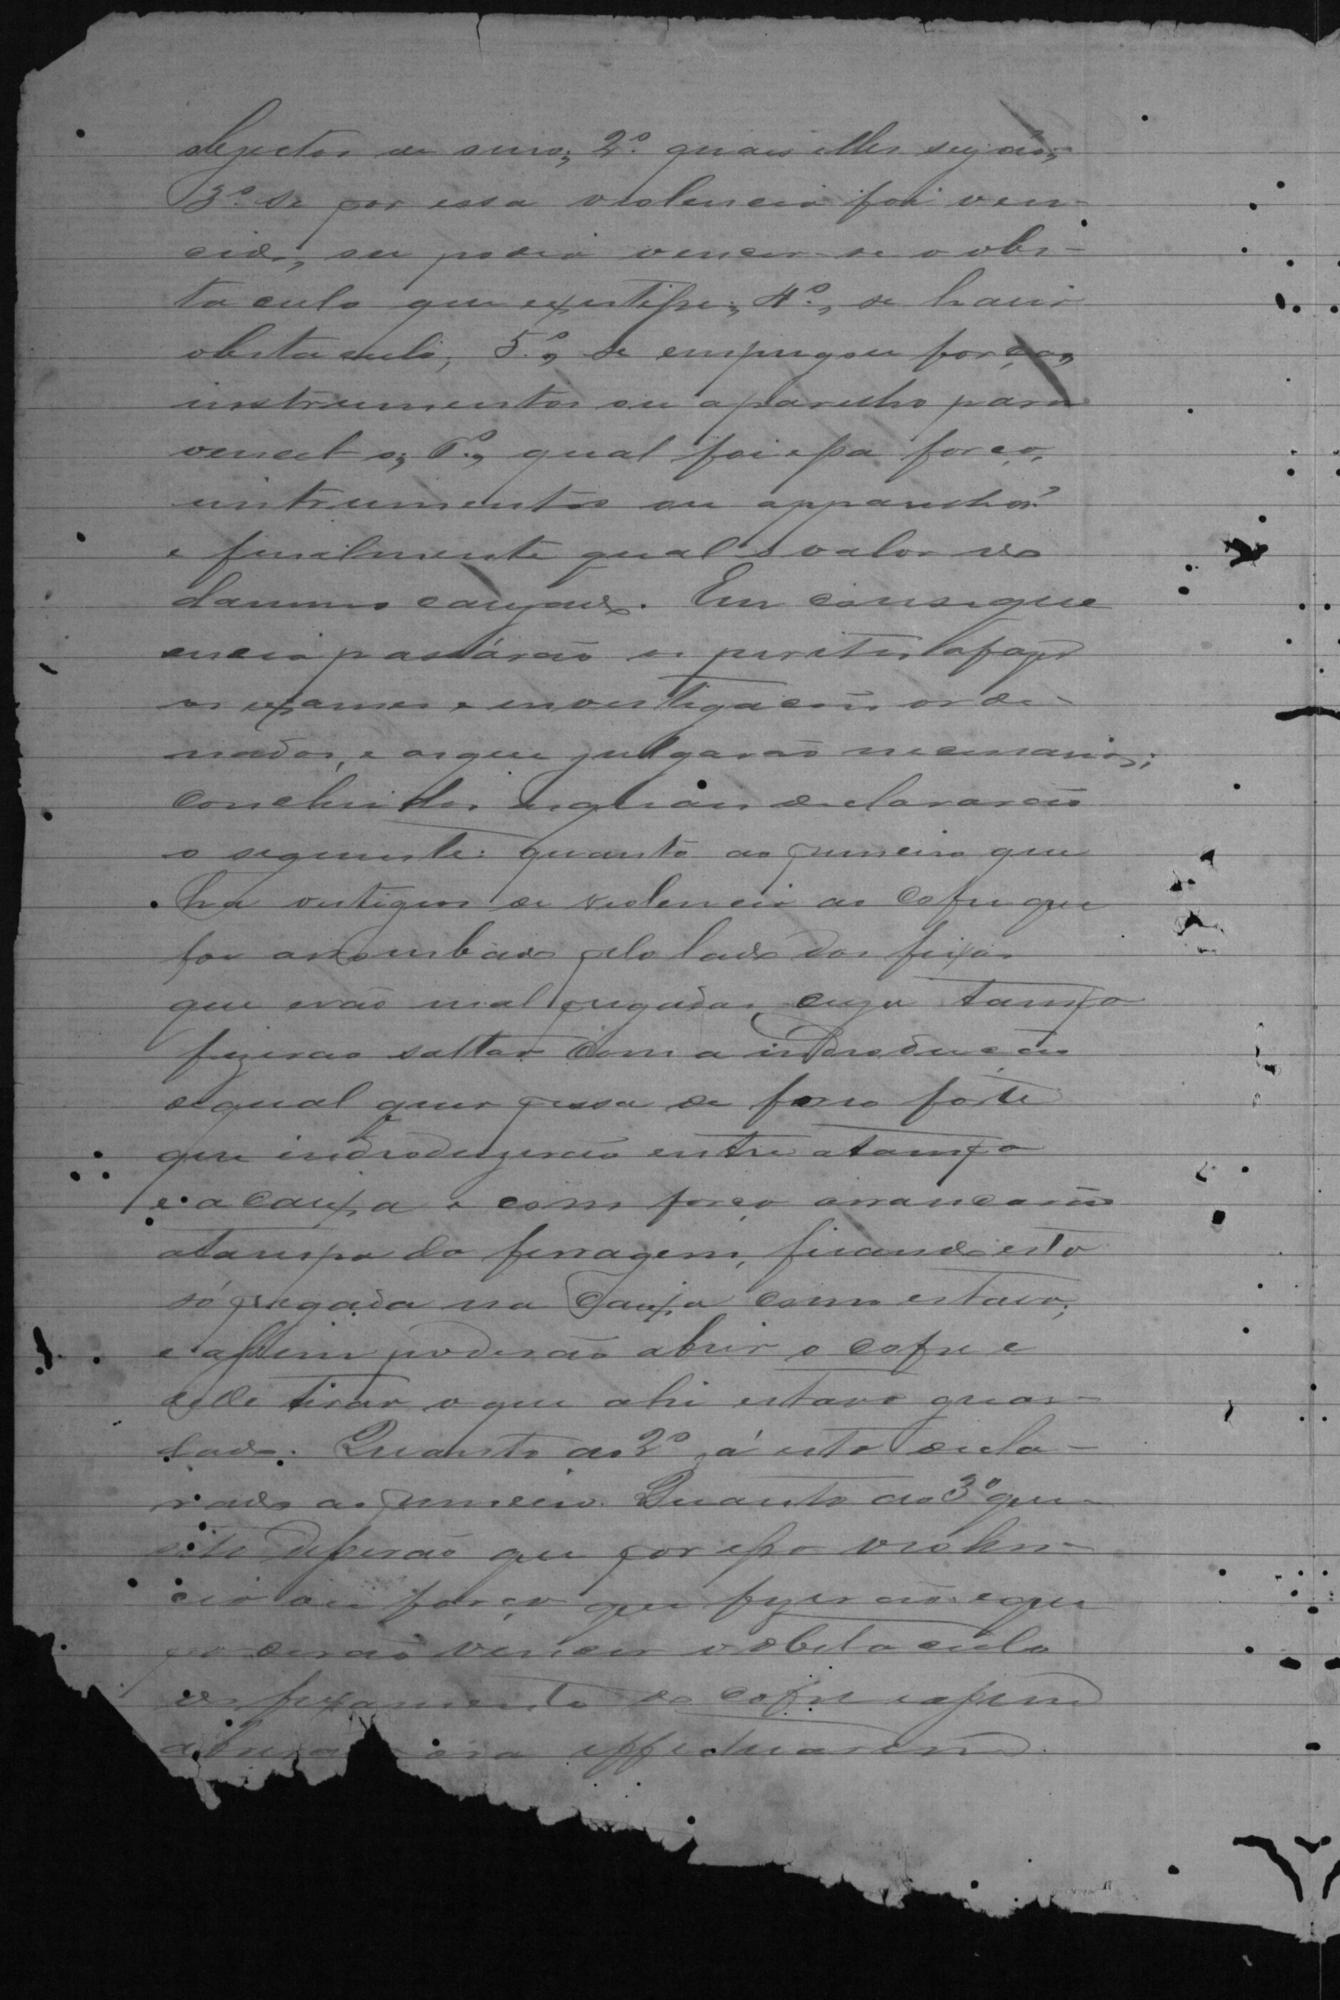 objectos de seu; 2º quaes elles sejão;
3º se por essa violencia foi ven-
cido, ou podia vencer-se o obs-
taculo que existisse; 4º, se havia
obstaculo; 5º, se empregou força,
instrumentos ou aparelho para
vencel-o; 6º, qual foi essa força,
intrumentos ou apparelhos?
e finalmente qual o valor do
damno causado. Em conseque
encia passárão os peritos a fazer
os exames e investigacões orde-
nados, e os que julgarão necessarios;
concluidos os quaes declararão
o seguinte: quanto ao primeiro que
ha vestigios de violencia ao cofre que
foi arrombado pelo lado dos feixos
que erão mal pregados, cuja tampa
fizerão saltar com a indroducção
de qual quer pessa de ferro forte
que indroduzirão entre a tampa
e a caixa e com força arrancarão
a tampa da ferragem, ficando esta
só pregada na Caixa como estava;
e assim poderão abrir o cofre e
delle tirar o que ahi estava guar-
dado. Quanto ao 2º já está decla-
rado ao primeiro. Quanto ao 3º que-
sito disserão que por essa violen-
cia ou força que fizerão é que
poderão vencer o obstaculo
do feixamento do cofre e assim
effectuarem